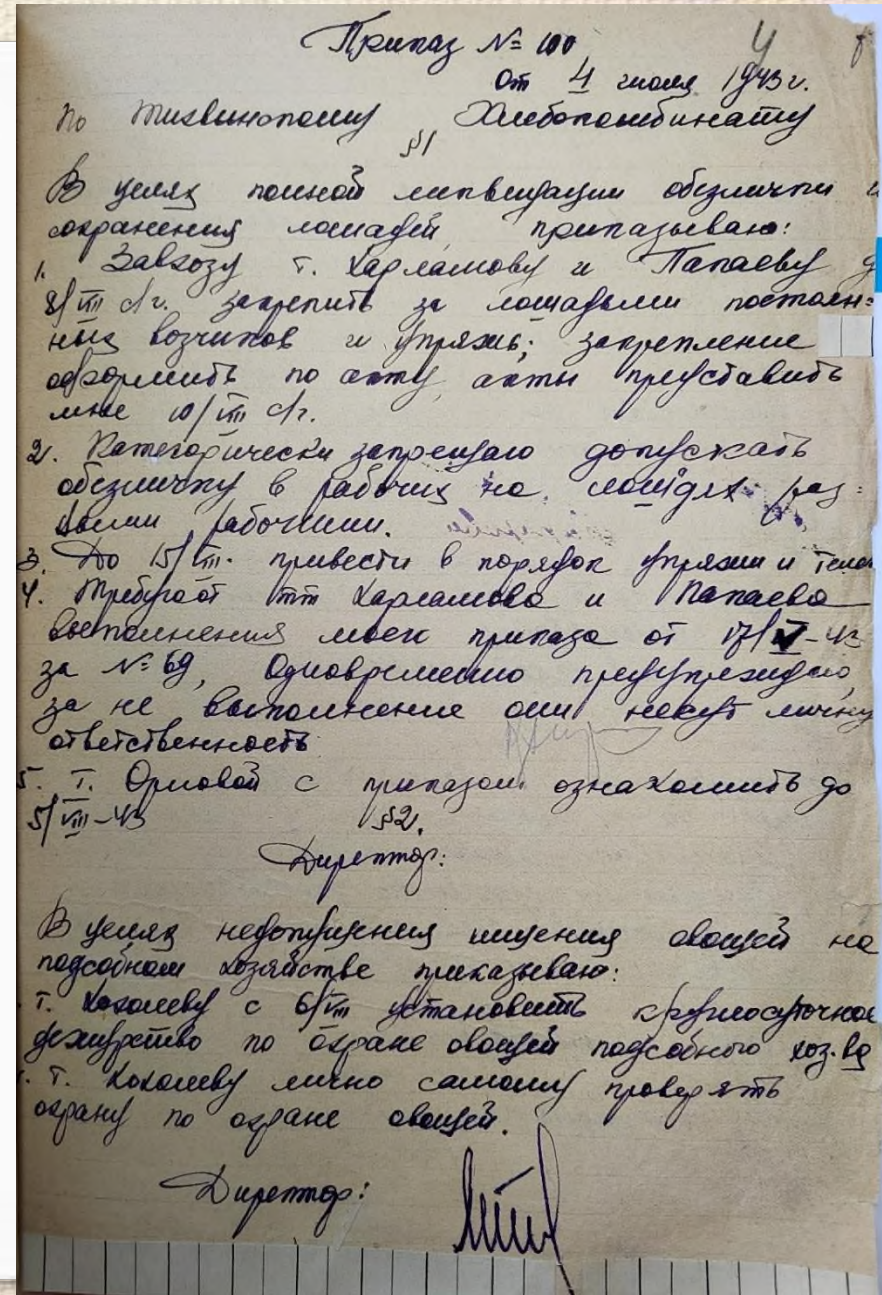 Приказ № 100
От 4 июля 1943 г.
По Тихвинскому Хлебокомбинату
§1
В целях полной ликвидации обезлички и
сохранения лошадей приказываю:
1. Завхозу т. Харламову и Папаеву
8/VIII с/г. закрепить за лошадьми постоян-
ных возчиков и упряжь; закрепление
оформить по акту, акты представить
мне 10/VIII с/г.
2. Категорически запрещаю допускать
обезличку в рабочих на лошадях раз-
ными рабочими.
3. До 15/VIII. привести в порядок упряжи и
4. Требуют тт Харламова и Папаева
выполнения моек приказа от 17/V-43
за № 69, Одновременно предупреждаю,
за не выполнение они несут личну
ответственность
5. т. Орловой с приказом ознакомить до
5/VIII-43
§2.
Директор:
В целях недопущения хищения овощей на
подсобном хозяйстве приказываю:
т. Хохолеву с 6/VIII установить круглосуточное
дежурство по охране овощей подсобного хоз.ва
т. Хохолеву лично самому проверять
охрану по охране овощей.
Директор: